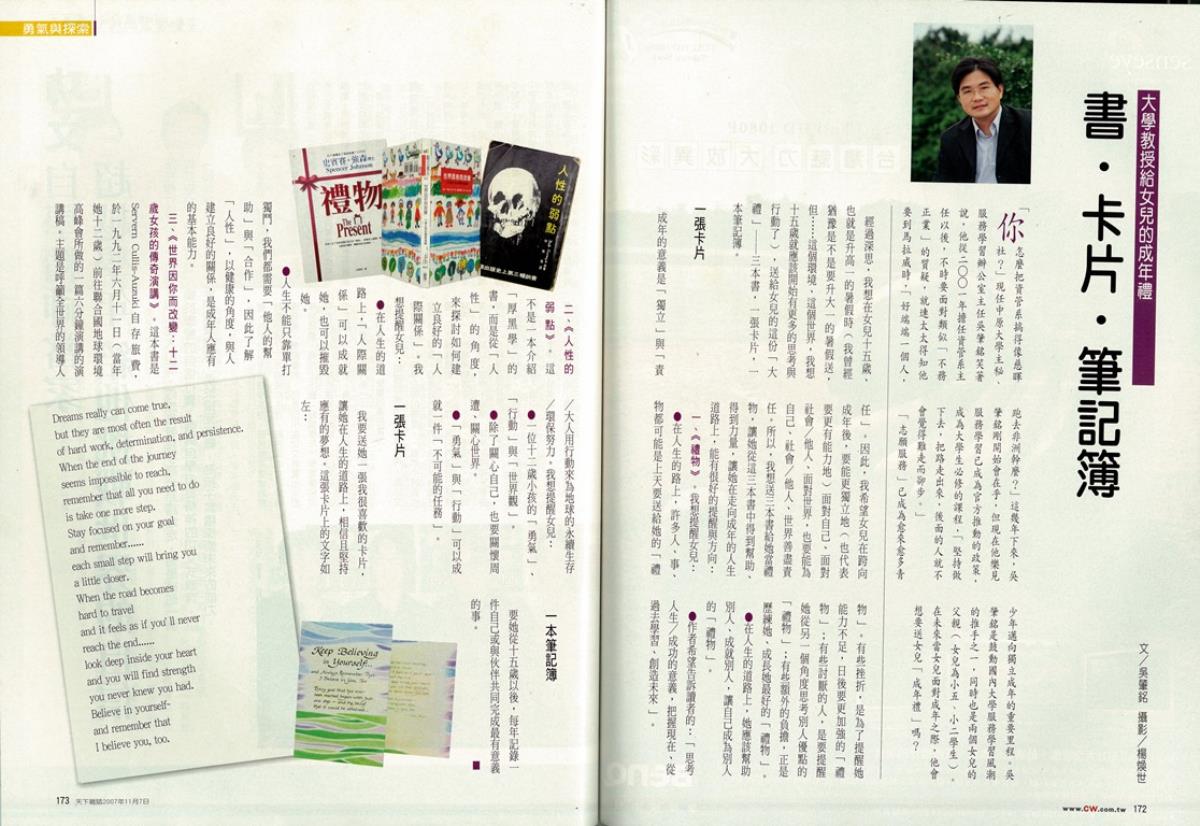 大學教授給女兒的成年禮
書・卡片・筆記簿
文／吳肇銘 攝影／楊煥世
「你怎麼把資管系搞得像慈暉
社？」現任中原大學主秘、
服務學習辦公室主任吳肇銘笑著
說，他從二○○一年擔任資管系主
任以後，不時要面對類似「不務
正業」的質疑，就連太太得知他
要到馬拉威時：「好端端一個人，
跑去非洲幹麼？」這幾年下來，吳
肇銘剛開始會在乎，但現在他樂見
服務學習已成為官方推動的政策，
成為大學生必修的課程，「堅持做
下去，把路走出來，後面的人就不
會覺得難走而卻步。」
「志願服務」已成為愈來愈多青
少年邁向獨立成年的重要里程。吳
肇銘是鼓動國內大學服務學習風潮
的推手之一，同時也是兩個女兒的
父親（女兒為小五、小二學生）。
在未來當女兒面對成年之際，他會
想要送女兒「成年禮」嗎？
經過深思，我想在女兒十五歲、
也就是升高一的暑假時（我曾經
猶豫是不是要升大一的暑假送，
但……這個環境、這個世界，我想
十五歲就應該開始有更多的思考與
行動了），送給女兒的這份「大
禮」——三本書，一張卡片，一
本筆記簿。
一張卡片
成年的意義是「獨立」與「責
任」。因此，我希望女兒在跨向
成年後，要能更獨立地（也代表
要更有能力地）面對自己、面對
社會／他人、面對世界，也要能為
自己、社會／他人、世界善盡責
任。所以，我想送三本書給她當禮
物，讓她從這三本書中得到幫助、
得到力量，讓她在走向成年的人生
道路上，能有很好的提醒與方向：
一、《禮物》。我想提醒女兒：
●在人生的路上，許多人、事、
物都可能是上天要送給她的「禮
物」。有些挫折，是為了提醒她
能力不足，日後要更加強的「禮
物」；有些討厭的人，是要提醒
她從另一個角度思考別人優點的
「禮物」；有些額外的負擔，正是
歷練她、成長她最好的「禮物」。
●在人生的道路上，她應該幫助
別人、成就別人，讓自己成為別人
的「禮物」。
●作者希望告訴讀者的：「思考
人生／成功的意義，把握現在、從
過去學習、創造未來」。
www.CW.com.tw 172
勇氣與探索
史賓賽・強森博士
Spencer Johnson
禮物
The Present
人性的弱點
二、《人性的
弱點》。這
不是一本介紹
「厚黑學」的
書，而是從「人
性」的角度，
來探討如何建
立良好的「人
際關係」。我
想提醒女兒：
●在人生的道
路上，「人際關
係」可以成就
她，也可以摧毀
她。
●人生不能只靠單打
獨鬥，我們都需要「他人的幫
助」與「合作」，因此了解
「人性」，以健康的角度，與人
建立良好的關係，是成年人應有
的基本能力。
三、《世界因你而改變：十二
歲女孩的傳奇演講》。這本書是
Severn Cullis-Suzuki自存旅費，
於一九九二年六月十一日（當年
她十二歲）前往聯合國地球環境
高峰會所做的一篇六分鐘演講的演
講稿，主題是呼籲全世界的領導人
／大人用行動來為地球的永續生存
／環保努力。我想提醒女兒：
●一位十二歲小孩的「勇氣」、
「行動」與「世界觀」。
●除了關心自己，也要關懷周
遭、關心世界。
●「勇氣」與「行動」可以成
就一件「不可能的任務」。
一張卡片
我要送她一張我很喜歡的卡片，
讓她在人生的道路上，相信且堅持
應有的夢想。這張卡片上的文字如
左：
Dreams really can come true,
but they are most often the result
of hard work, determination, and persistence.
When the end of the journey
seems impossible to reach,
remember that all you need to do
is take one more step.
Stay focused on your goal
and remember......
each small step will bring you
a little closer.
When the road becomes
hard to travel
and it feels as if you'll never
reach the end......
look deep inside your heart
and you will find strength
you never knew you had.
Believe in yourself-
and remember that
I believe you, too.
一本筆記簿
要她從十五歲以後，每年記錄一
件自己或與伙伴共同完成最有意義
的事。 ■
Keep Believing
in Yourself...
and Always Remember That
I Believe in You, Too
173 天下雜誌2007年11月7日